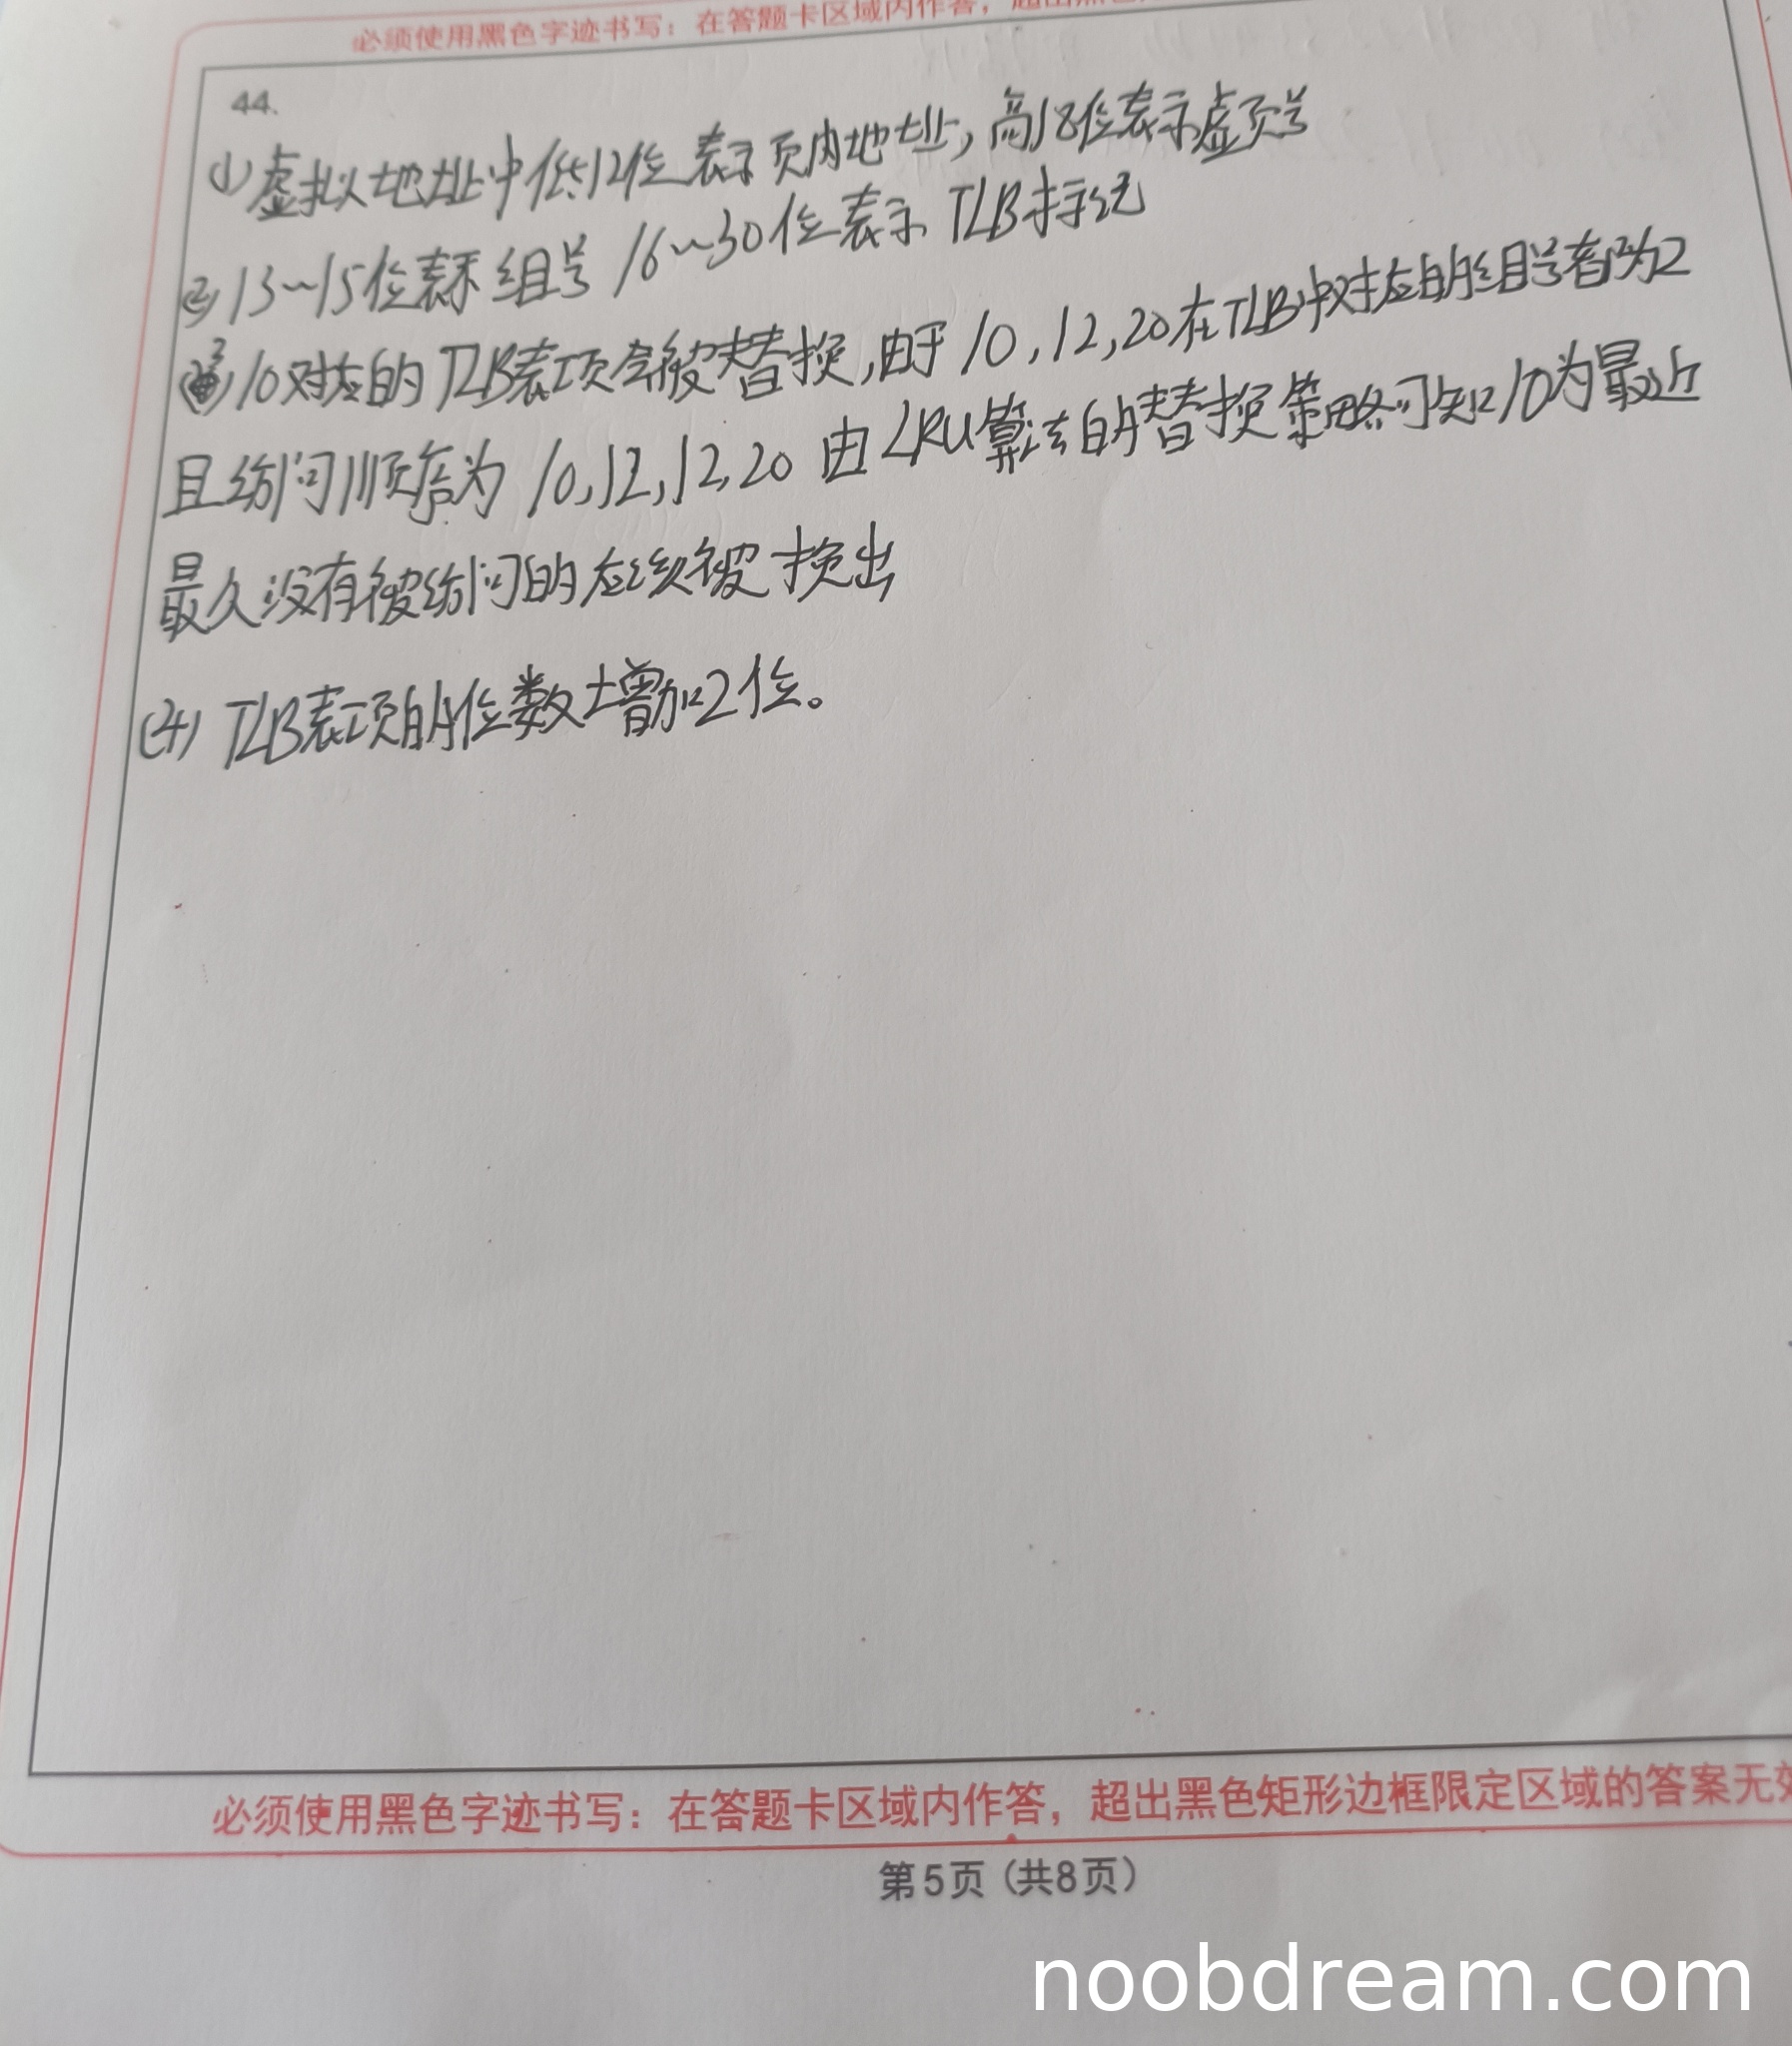 必须使用黑色字迹书写：在答题卡区域内作答，超出黑色
44.
(1) 虚拟地址中低12位表示页内地址，高18位表示虚页号
(2) 13~15位表示组号 16~30位表示TLB标记
(3) 10对应的TLB表项会被替换，由于10，12，20在TLB中对应的组号都为2
且访问顺序为 10，12，12，20 由LRU算法的替换策略可知10为最近
最久没有被访问的应该被换出
(4) TLB表项的位数增加2位。
必须使用黑色字迹书写：在答题卡区域内作答，超出黑色矩形边框限定区域的答案无效
第5页（共8页）
noobdream.com